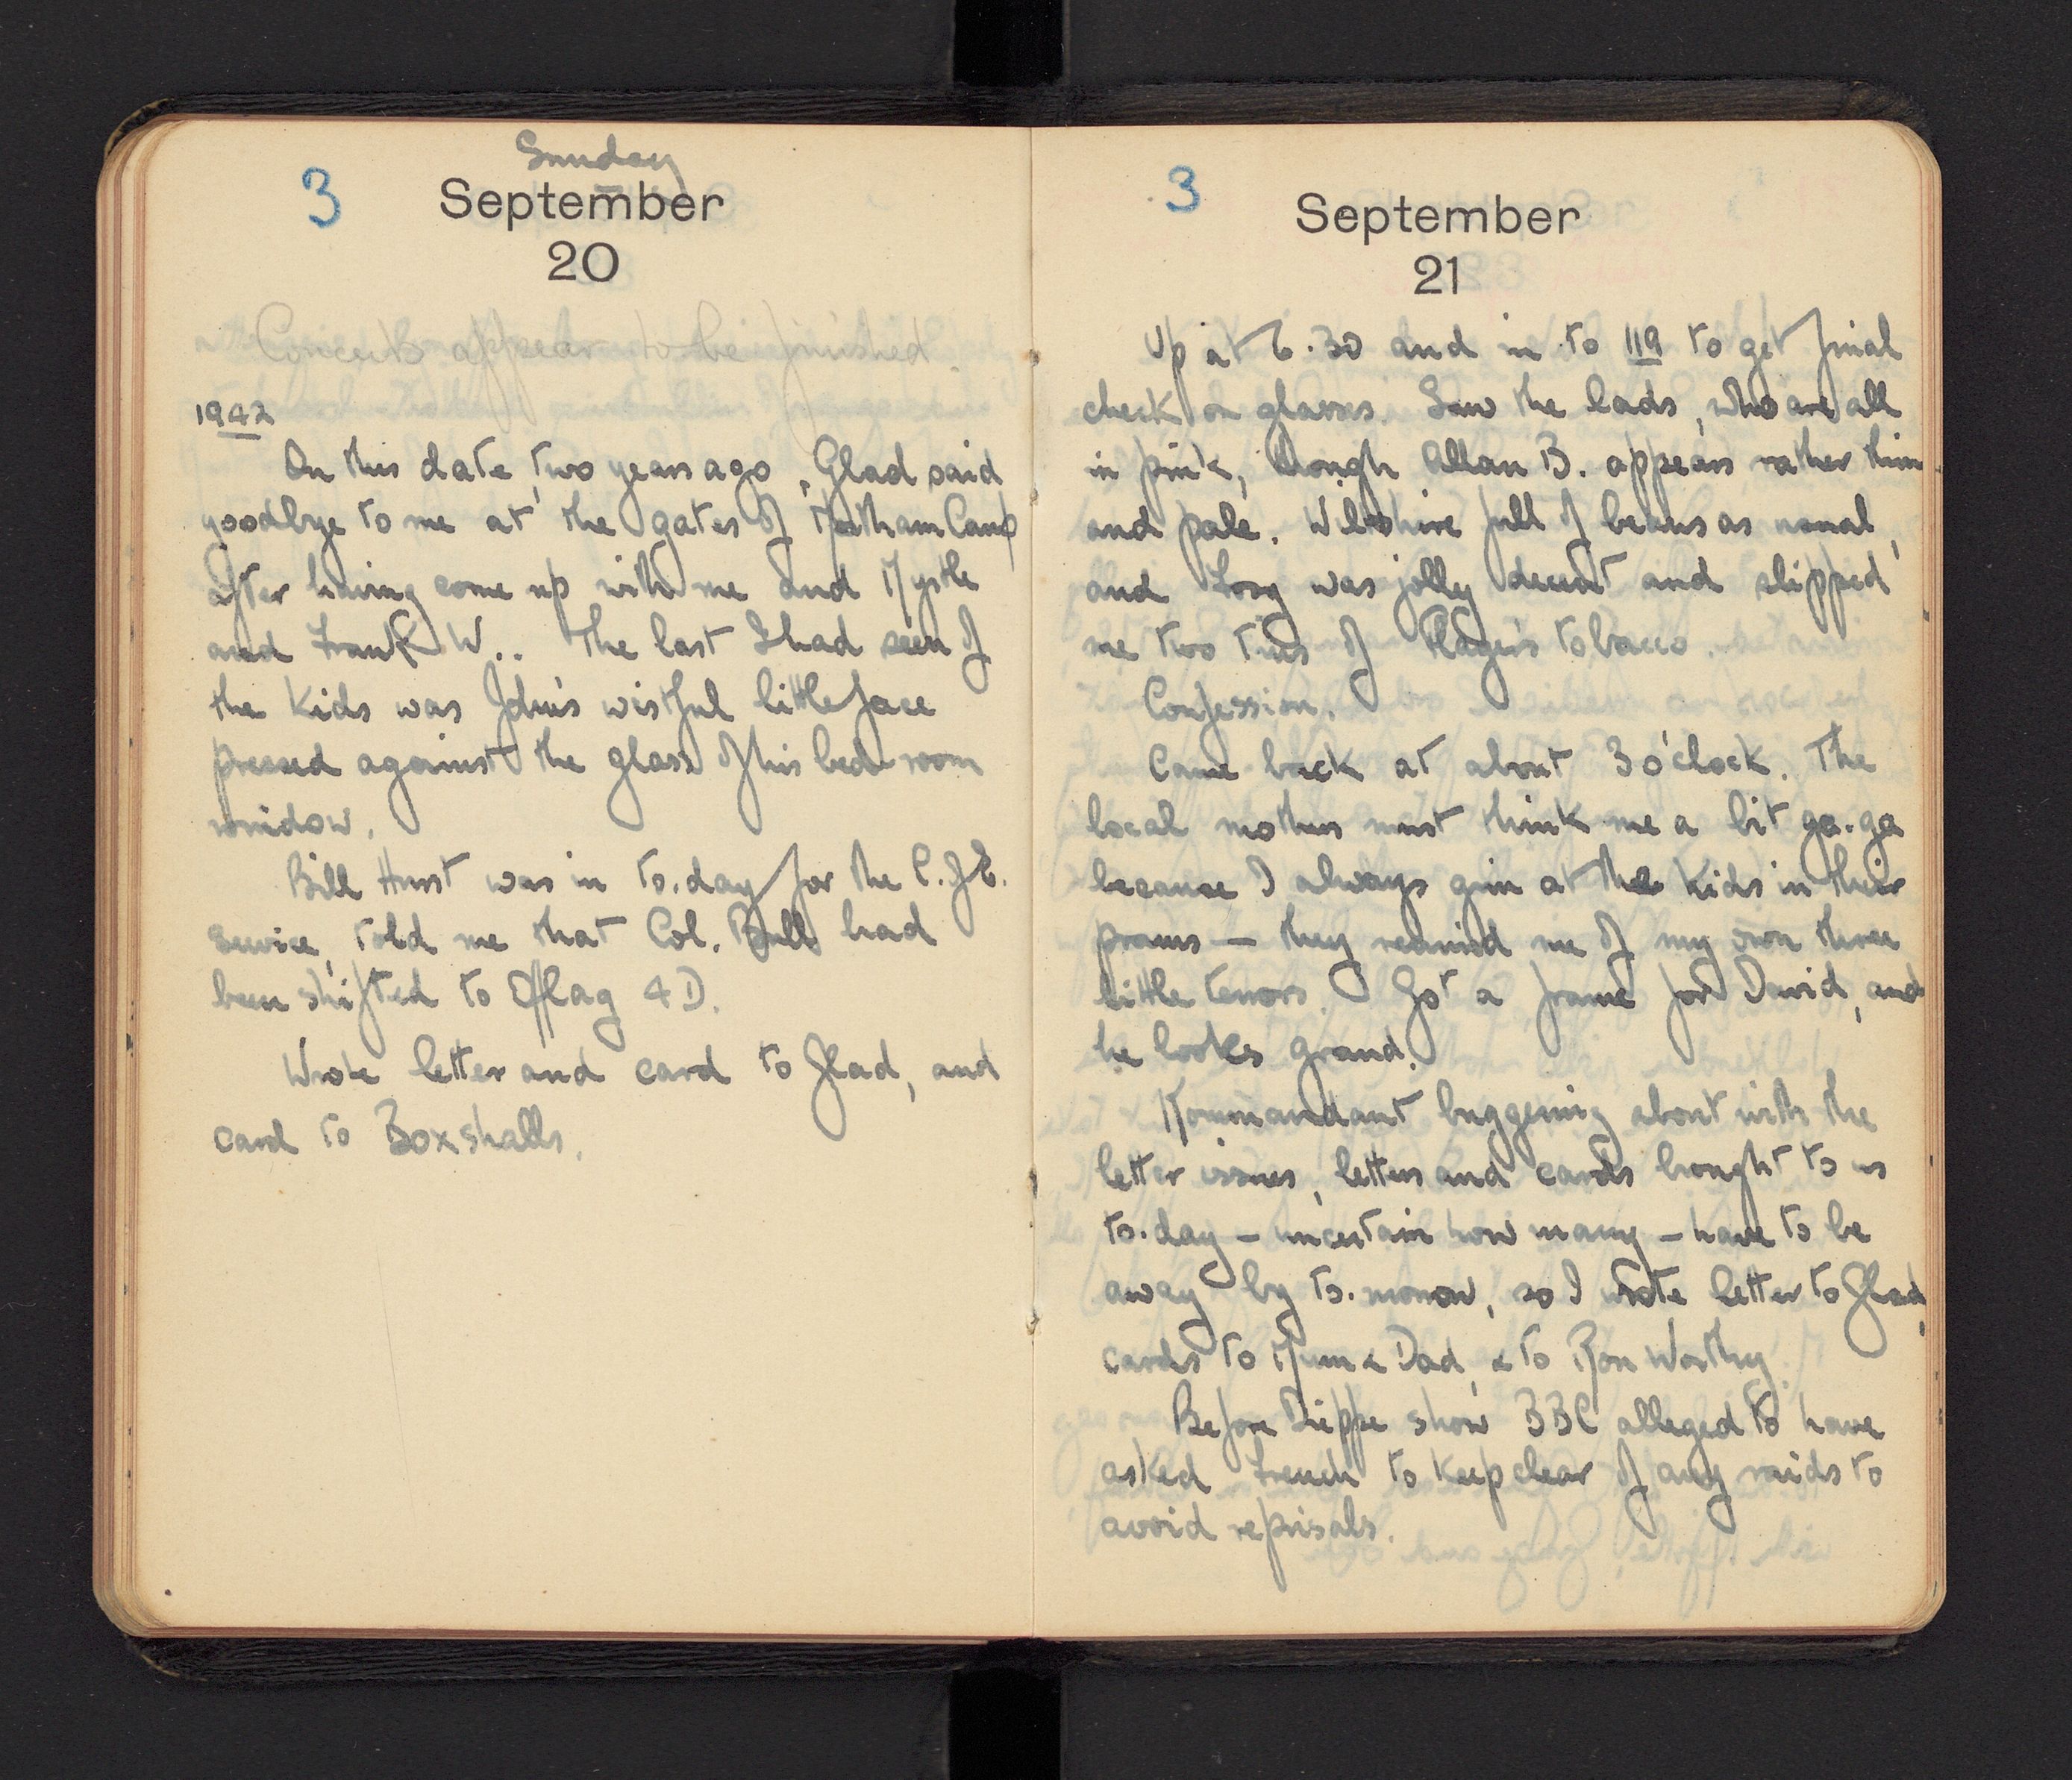 Sunday
3
September
20
Concerts appear to be finished.
1942
On this date, two years ago, Glad said
goodbye to me at the gates of Camp
after having come up with me and
and Frank W.. The last I had seen of
the kids was John's wistful little face
pressed against the glass of his bed-room
window.
Bill Hurst was in to-day for the C. of E.
service, told me that Col. Bull had
been shifted to Offlag 4D.
Wrote letter and card to Glad, and
card to Boxshalls.
3
September
21
Up at 6.30 and in to 119 to get final
check on glasses. Saw the lads, who are all
in pink, though Allan B. appears rather thin
and pale. Wiltshire full of beans as usual,
and was jolly decent and slipped
me two tins of Player's tobacco.
Confession.
Came back at about 3 o'clock. The
local mothers must think me a bit ga-ga
because I always grin at the kids in their
prams — they remind me of my own three
little terrors. Got a frame for David, and
he looks grand.
Kommandant buggering about with the
letter issues, letters and cards brought to us
to-day — uncertain how many — have to be
away by to-morrow, so I wrote letter to Glad,
cards to Mum & Dad, & to Ron Worthy.
Before Dieppe show BBC alleged to have
asked French to keep clear of any raids to
avoid reprisals.